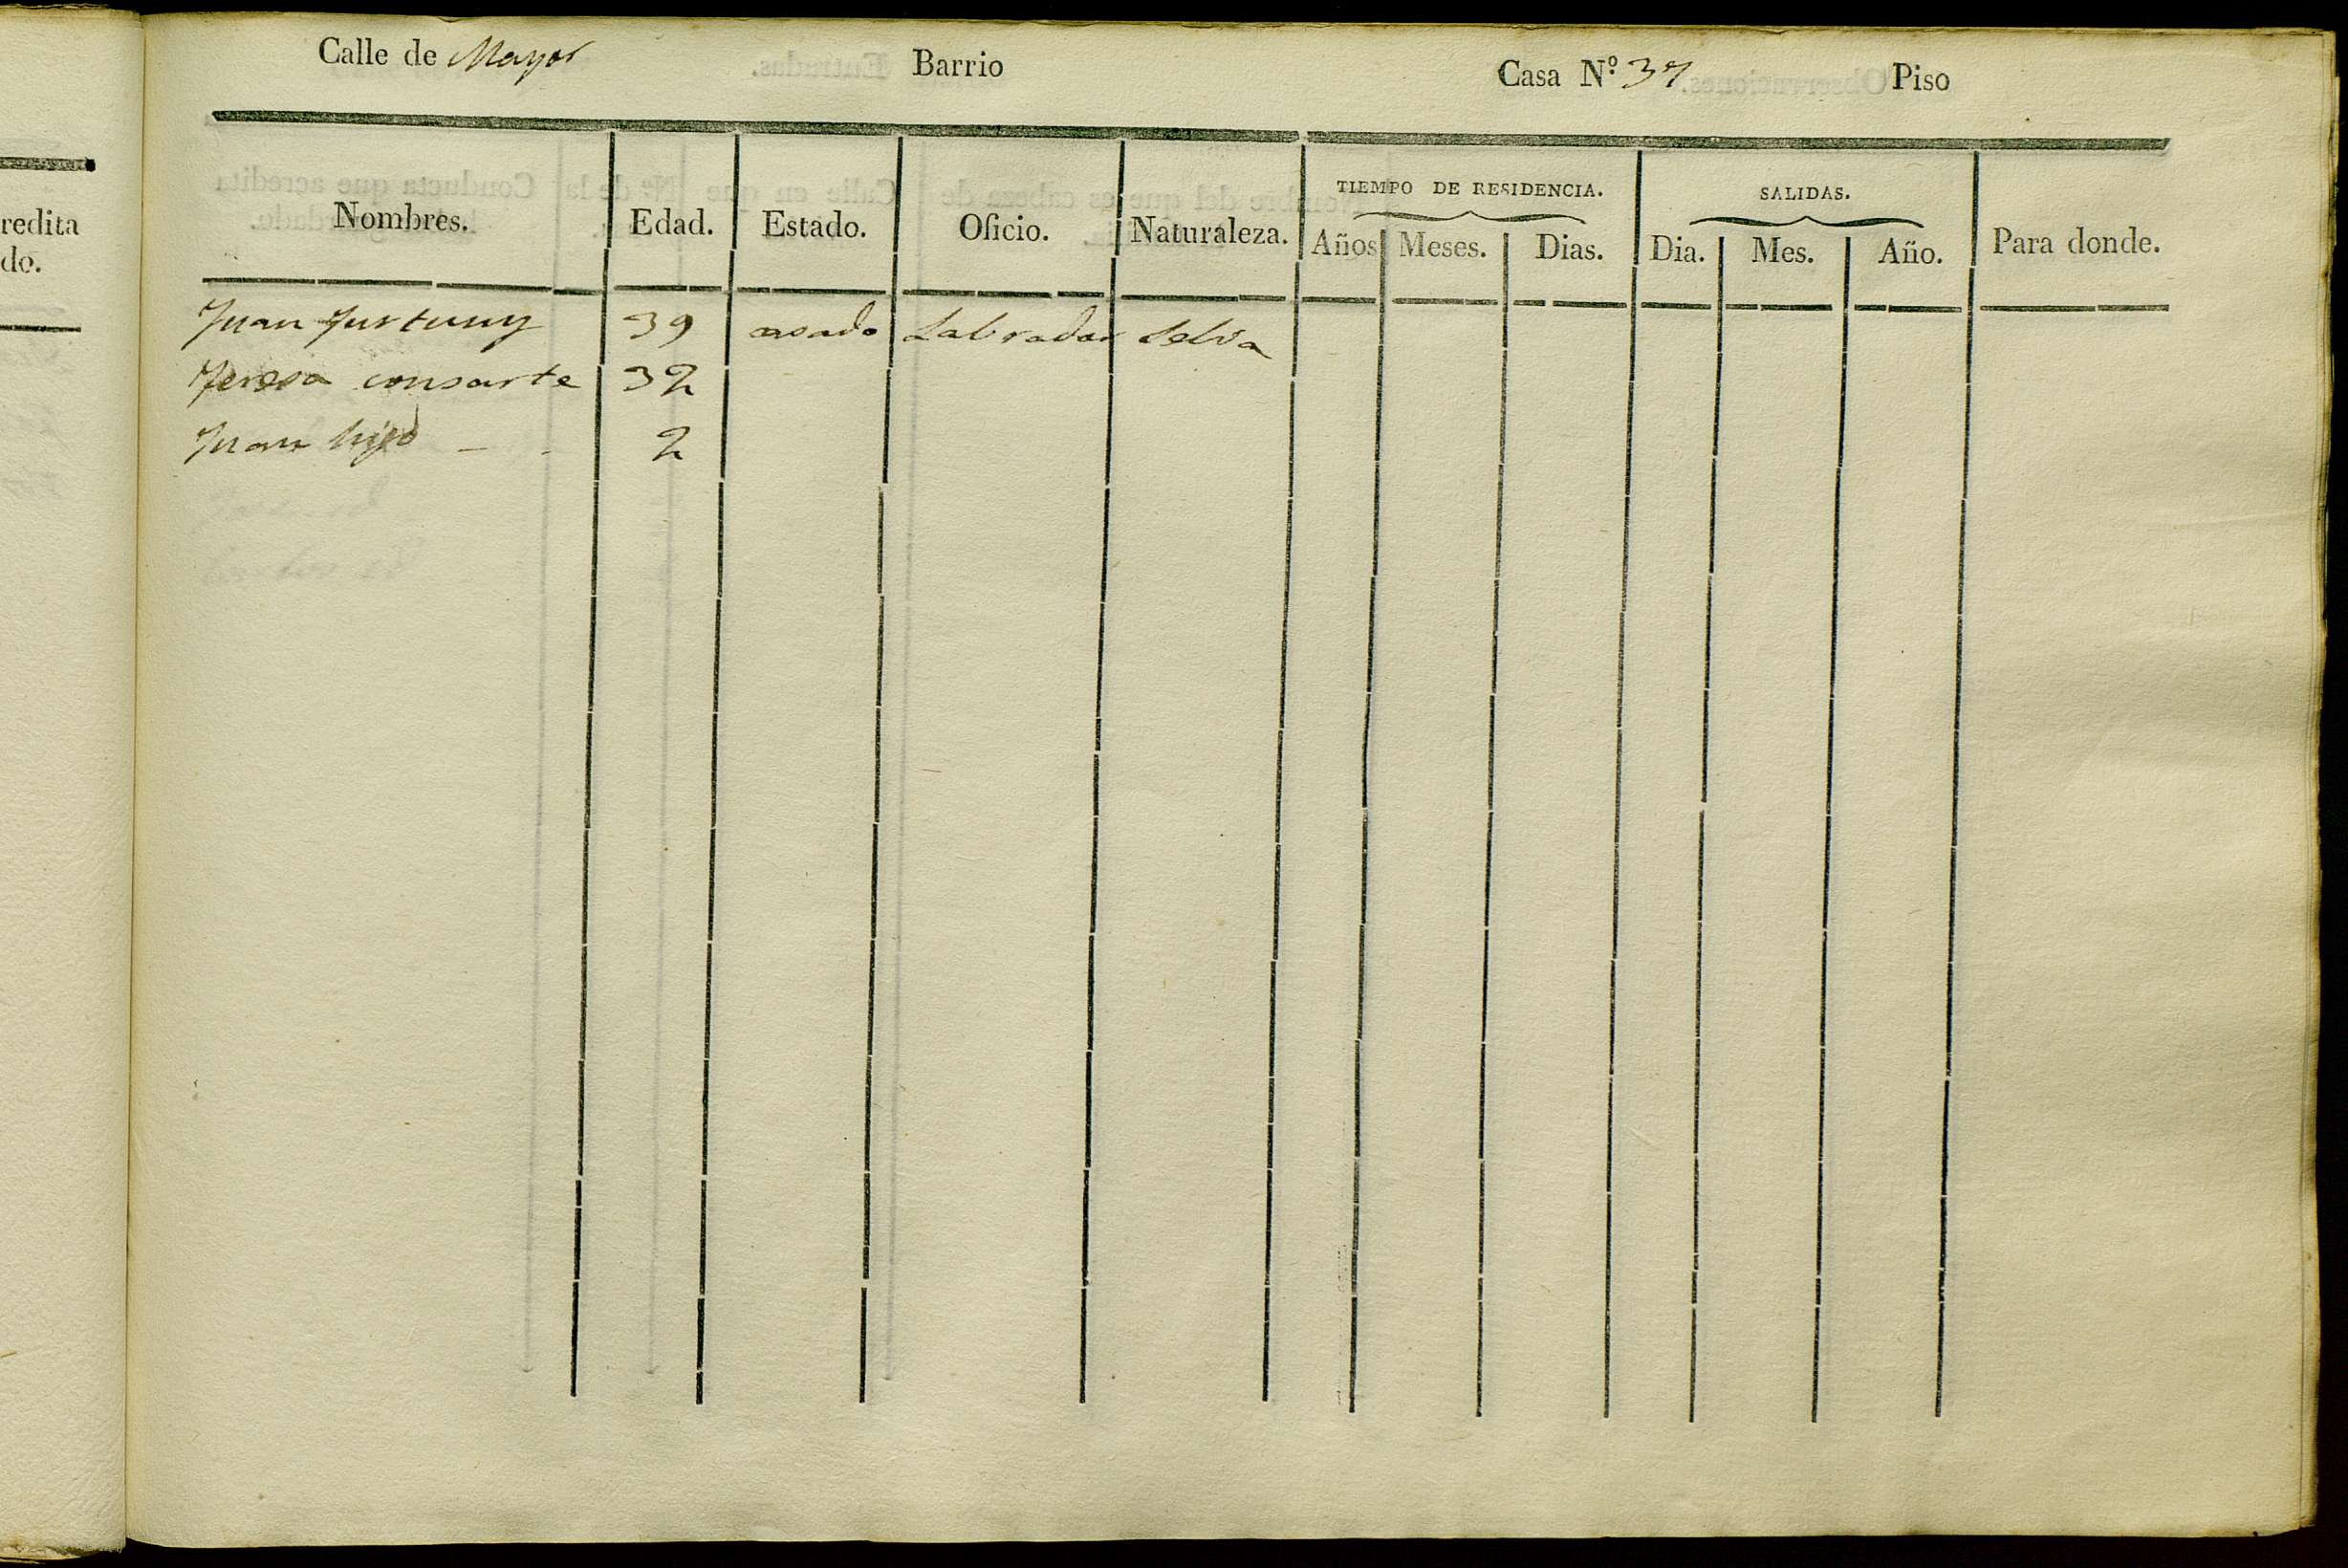 Calle de Mayor Barrio Casa N.º 37 Piso
TIEMPO DE RESIDENCIA. SALIDAS.
Nombres. Edad. Estado. Oficio. Naturaleza. Años Meses. Dias. Dia. Mes. Año. Para donde.
Juan Furtuny 39 casado Labrador Selva
Teresa consorte 32
Juan hijo - 2
redita
do.